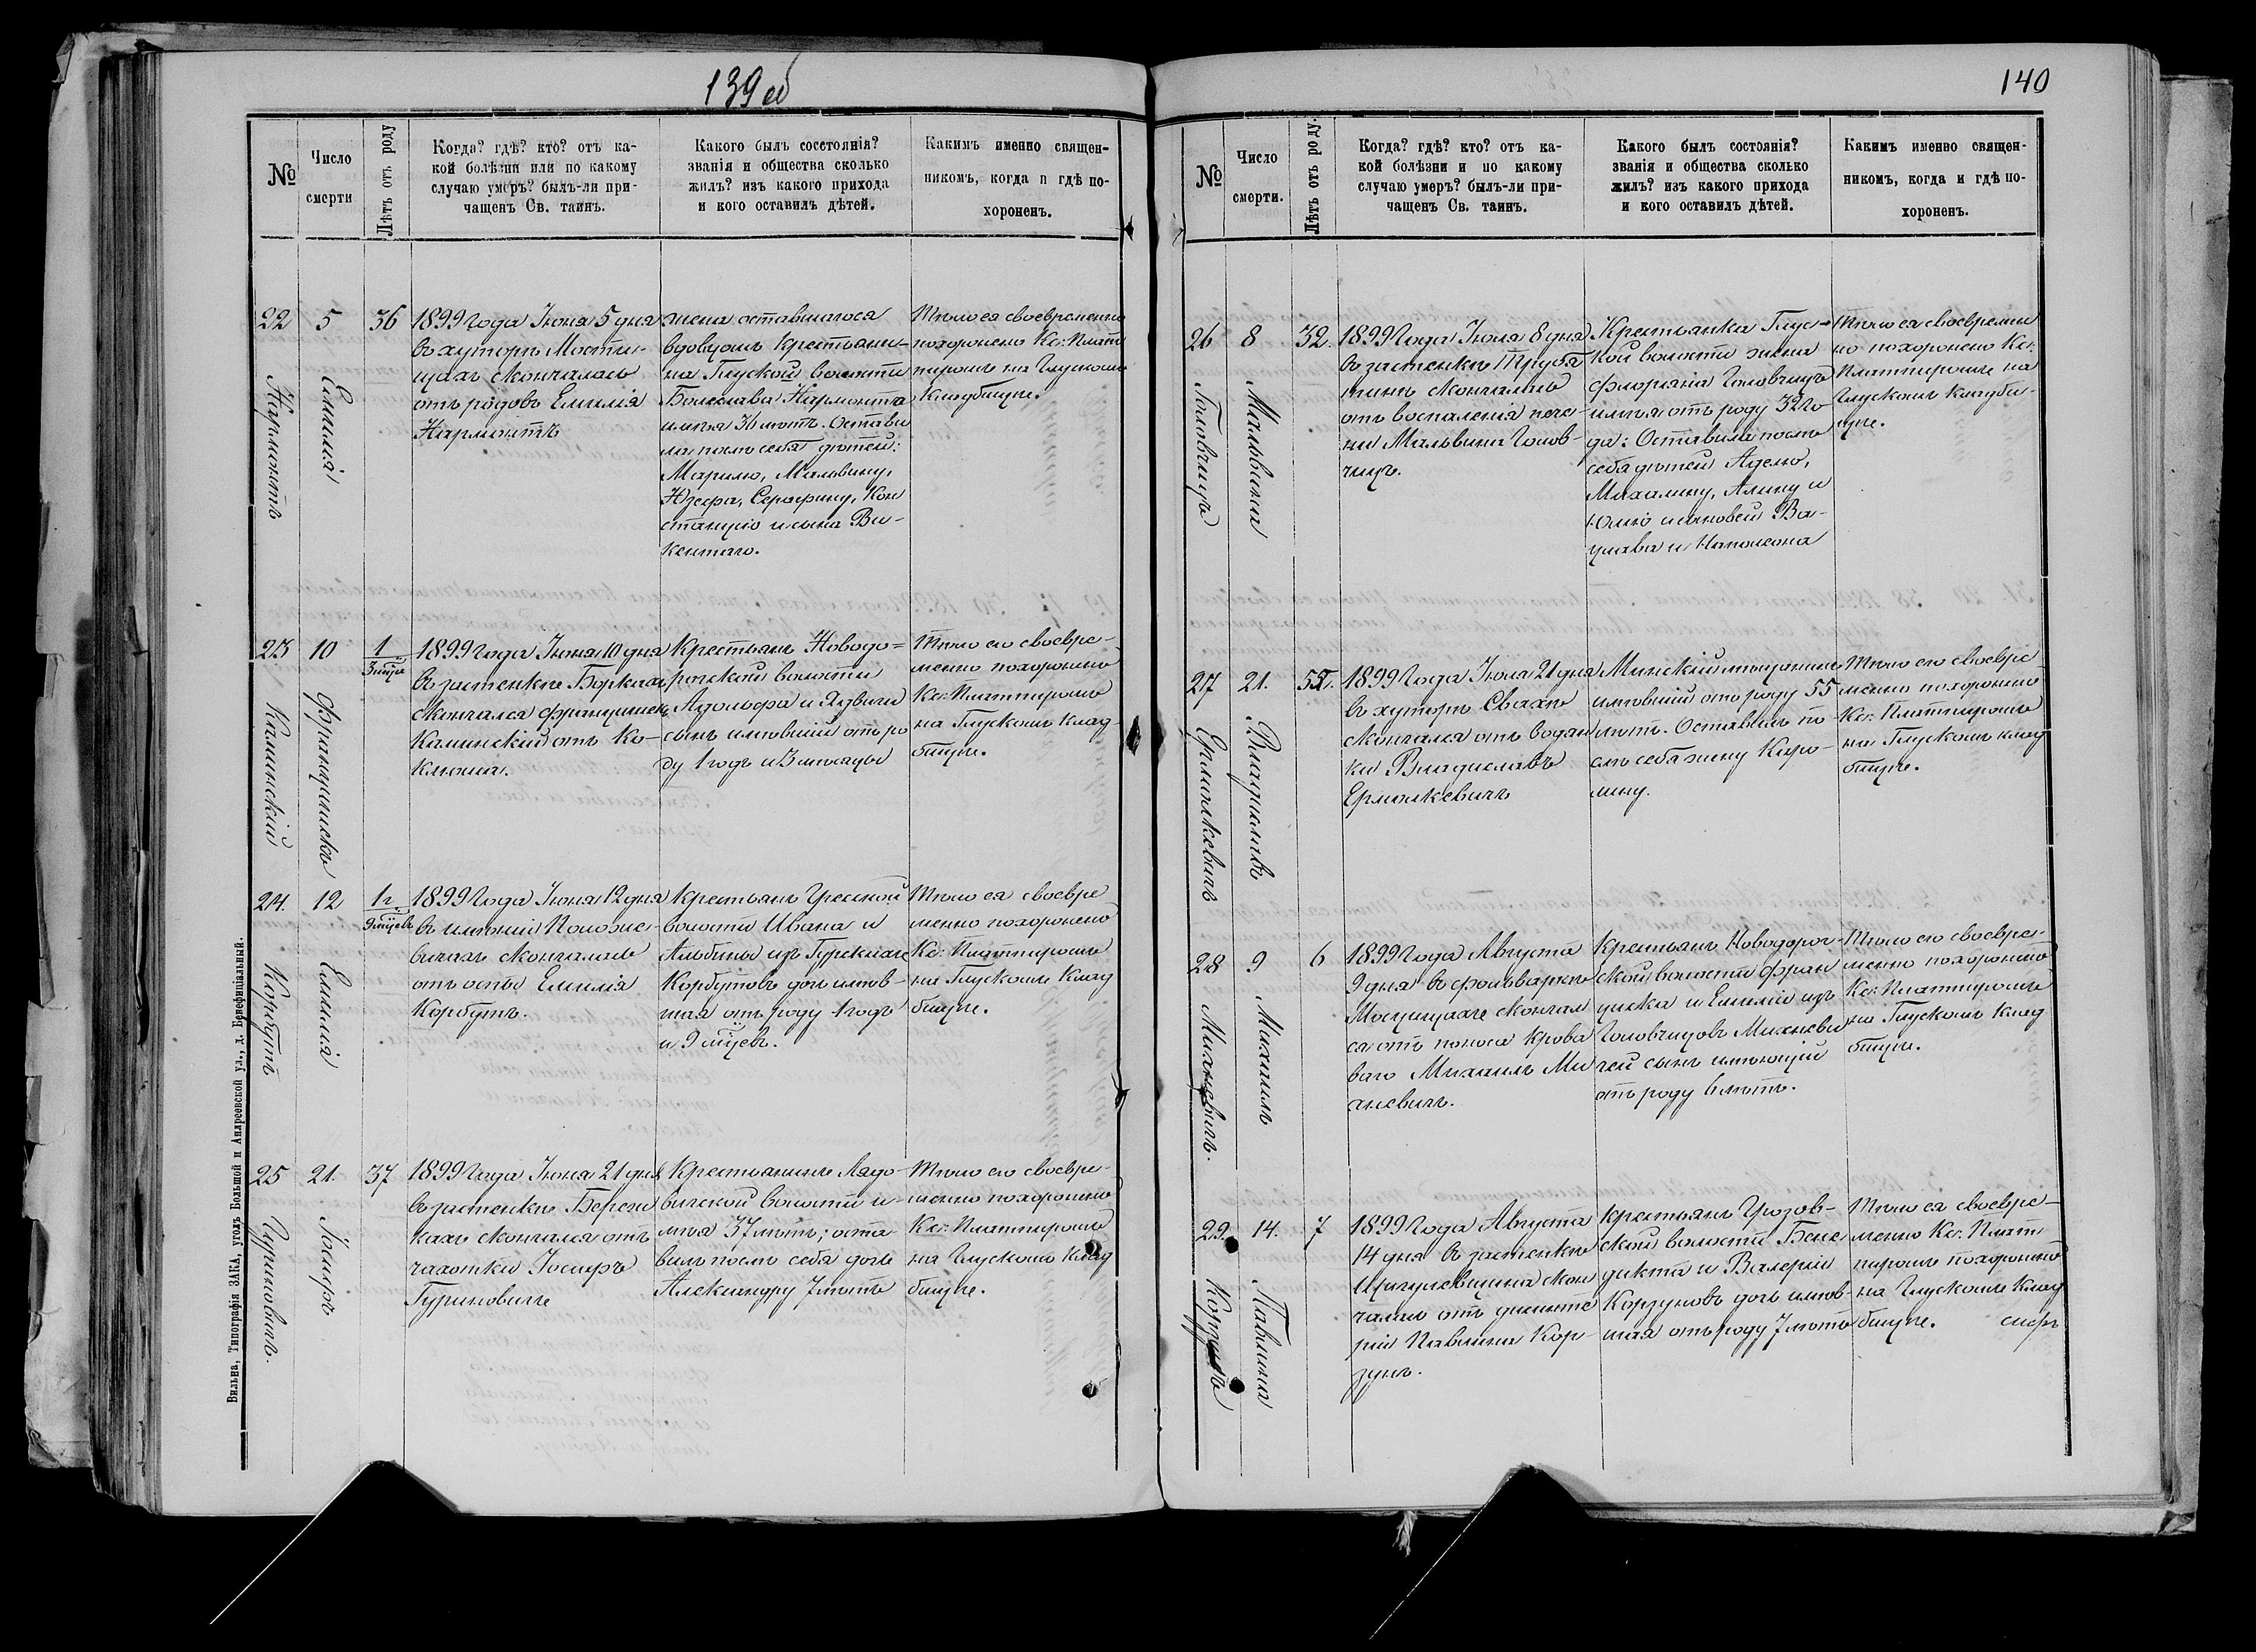 139 об
№
Число
смерти
Лѣтъ отъ роду
Когда? гдѣ? кто? отъ ка-
кой болѣзни или по какому
случаю умеръ? былъ-ли при-
чащенъ Св. таинъ.
Какого былъ состоянія?
званія и общества сколько
жилъ? изъ какого прихода
и кого оставилъ дѣтей.
Какимъ именно священ-
никомъ, когда и гдѣ по-
хороненъ.
22
5
36
Емилія
Нармонтъ
1899 года Іюня 5 дня
въ хуторѣ Мости-
щахъ скончалась
отъ родовъ Емилія
Нармонтъ
жена оставшагося
вдовцомъ крестьяни-
на Глуской волости
Болеслава Нармонта
имѣя 36 лѣтъ. Остави
ла послѣ себя дѣтей:
Марилю, Мальвину,
Юзефа, Серафину, Кон
станцію и сына Ви-
кентаго.
Тѣло ея своевременно
похоронено Кс: Плат
пиромъ на Глускомъ
Кладбищѣ.
23
10
1
3 мця
Францишекъ
Каминскій
1899 года Іюня 10 дня
въ застенкѣ Боркахъ
скончался Францишекъ
Каминскій отъ Ко-
клюша.
Крестьянъ Новодо=
рожской волости
Адольфа и Ядвиги
сынъ имѣвшій отъ ро
ду 1 годъ и 3 мѣсяцы
Тѣло его своевре-
менно похоронено
Кс: Платпиромъ
на Глускомъ Клад
бищѣ.
24.
12
1 г.
9 мцевъ
Емилія
Корбутъ
1899 года Іюня 12 дня
въ имѣніи Положе-
вичахъ скончалась
отъ оспы Емилія
Корбутъ.
Крестьянъ Гресской
волости Ивана и
Альбины изъ Гурскихъ
Корбутовъ дочь имѣв-
шая отъ роду 1 годъ
и 9 мцевъ.
Тѣло ея своевре
менно похоронено
Кс: Платпиромъ
на Глускомъ Клад
бищѣ.
25
21.
37
Іосифъ
Гуриновичъ.
1899 года Іюня 21 дня
въ застенкѣ Берези
кахъ скончался отъ
чахотки Іосифъ
Гуриновичъ
Крестьянинъ Лядо-
вичской волости и-
мѣя 37 лѣтъ; оста-
вилъ послѣ себя дочь
Александру 7 лѣтъ
Тѣло его своевре-
менно похоронено
Кс: Платпиромъ
на Глускомъ Клад
бищѣ.
Вильна, Типографія ЗАКА, уголъ Большой и Андреевской ул., д. Бенефиціальный.
140
№
Число
смерти.
Лѣтъ отъ роду.
Когда? гдѣ? кто? отъ ка-
кой болѣзни и по какому
случаю умеръ? былъ-ли при-
чащенъ Св. таинъ.
Какого былъ состоянія?
званія и общества сколько
жилъ? изъ какого прихода
и кого оставилъ дѣтей.
Какимъ именно священ-
никомъ, когда и гдѣ по-
хороненъ.
26
8
32
Мальвина
Головчицъ
1899 года Іюля 8 дня
въ застенкѣ Труба
тинъ скончалась
отъ воспаленія пече-
ни Мальвина Голов-
чицъ.
Крестьянка Глус=
кой волости жена
Флоріана Головчицъ
имѣя отъ роду 32 го
да: Оставила послѣ
себя дѣтей Аделю,
Михалину, Алину и
Юлію и сыновей Ва-
цлава и Наполеона
Тѣло ея своевремен
но похоронено Кс:
Платпиромъ на
Глускомъ кладби-
щѣ.
27
21.
55.
Владиславъ
Ермолкевичъ
1899 года Іюля 21 дня
въ хуторѣ Свахѣ
скончался отъ водян
ки Владиславъ
Ермолкевичъ
Минскій мѣщанинъ
имѣвшій отъ роду 55
лѣтъ. Оставилъ по
слѣ себя жену Каро-
лину.
Тѣло его своевре
менно похоронено
Кс: Платпиромъ
на Глускомъ клад
бищѣ.
28
9
6
Михаилъ
Михневичъ.
1899 года Августа
9 дня въ фольваркѣ
Мосцищахъ скончал
ся отъ поноса крова
ваго Михаилъ Ми
хневичъ.
Крестьянъ Новодорож-
ской волости Фран
цишка и Емиліи изъ
Головчицовъ Михневи
чей сынъ имѣющій
отъ роду 6 лѣтъ.
Тѣло его своевре-
менно похоронено
Кс: Платпиромъ
на Глускомъ Клад
бищѣ.
29.
14.
7
Павлина
Корзунъ
1899 года Августа
14 дня въ застенкѣ
скон
чалась отъ дизенте
ріи Павлина Кор-
зунъ.
Крестьянъ Грозов-
ской волости Бене
дикта и Валеріи
Корзуновъ дочь имѣв-
шая отъ роду 7 лѣтъ
Тѣло ея своевре-
менно Кс: Плат
пиромъ похоронено
на Глускомъ Клад
бищѣ.